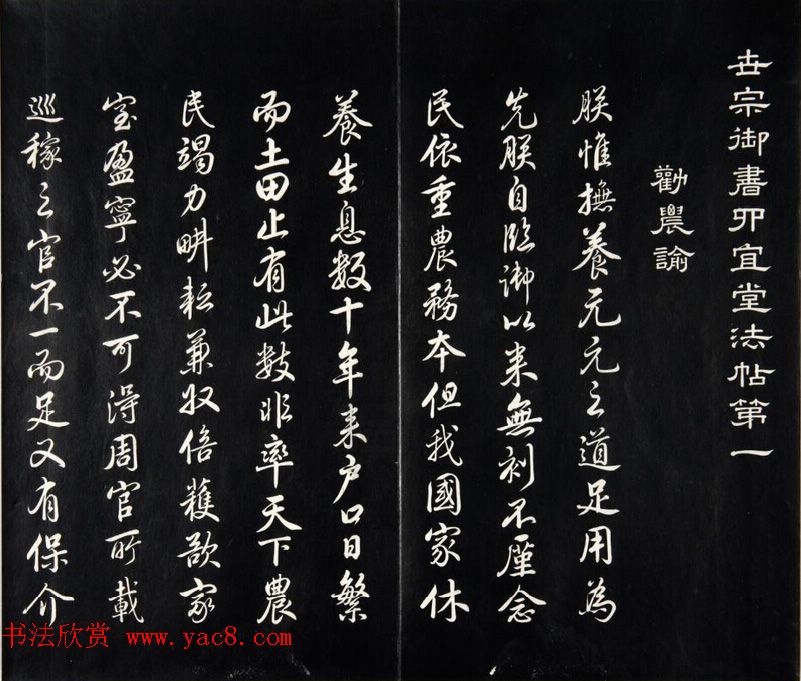 世宗御書四宜堂法帖第一
勸農諭
朕惟撫養元元之道足用為
先朕自臨御以来無刻不廑念
民依重農務本但我國家休
養生息数十年来户口日繁
而土田止有此数非率天下農
民竭力畊耘兼收倍穫欲家
室盈寧必不可得周官所載
巡稼之官不一而足又有保介
书法欣赏 www.yac8.com